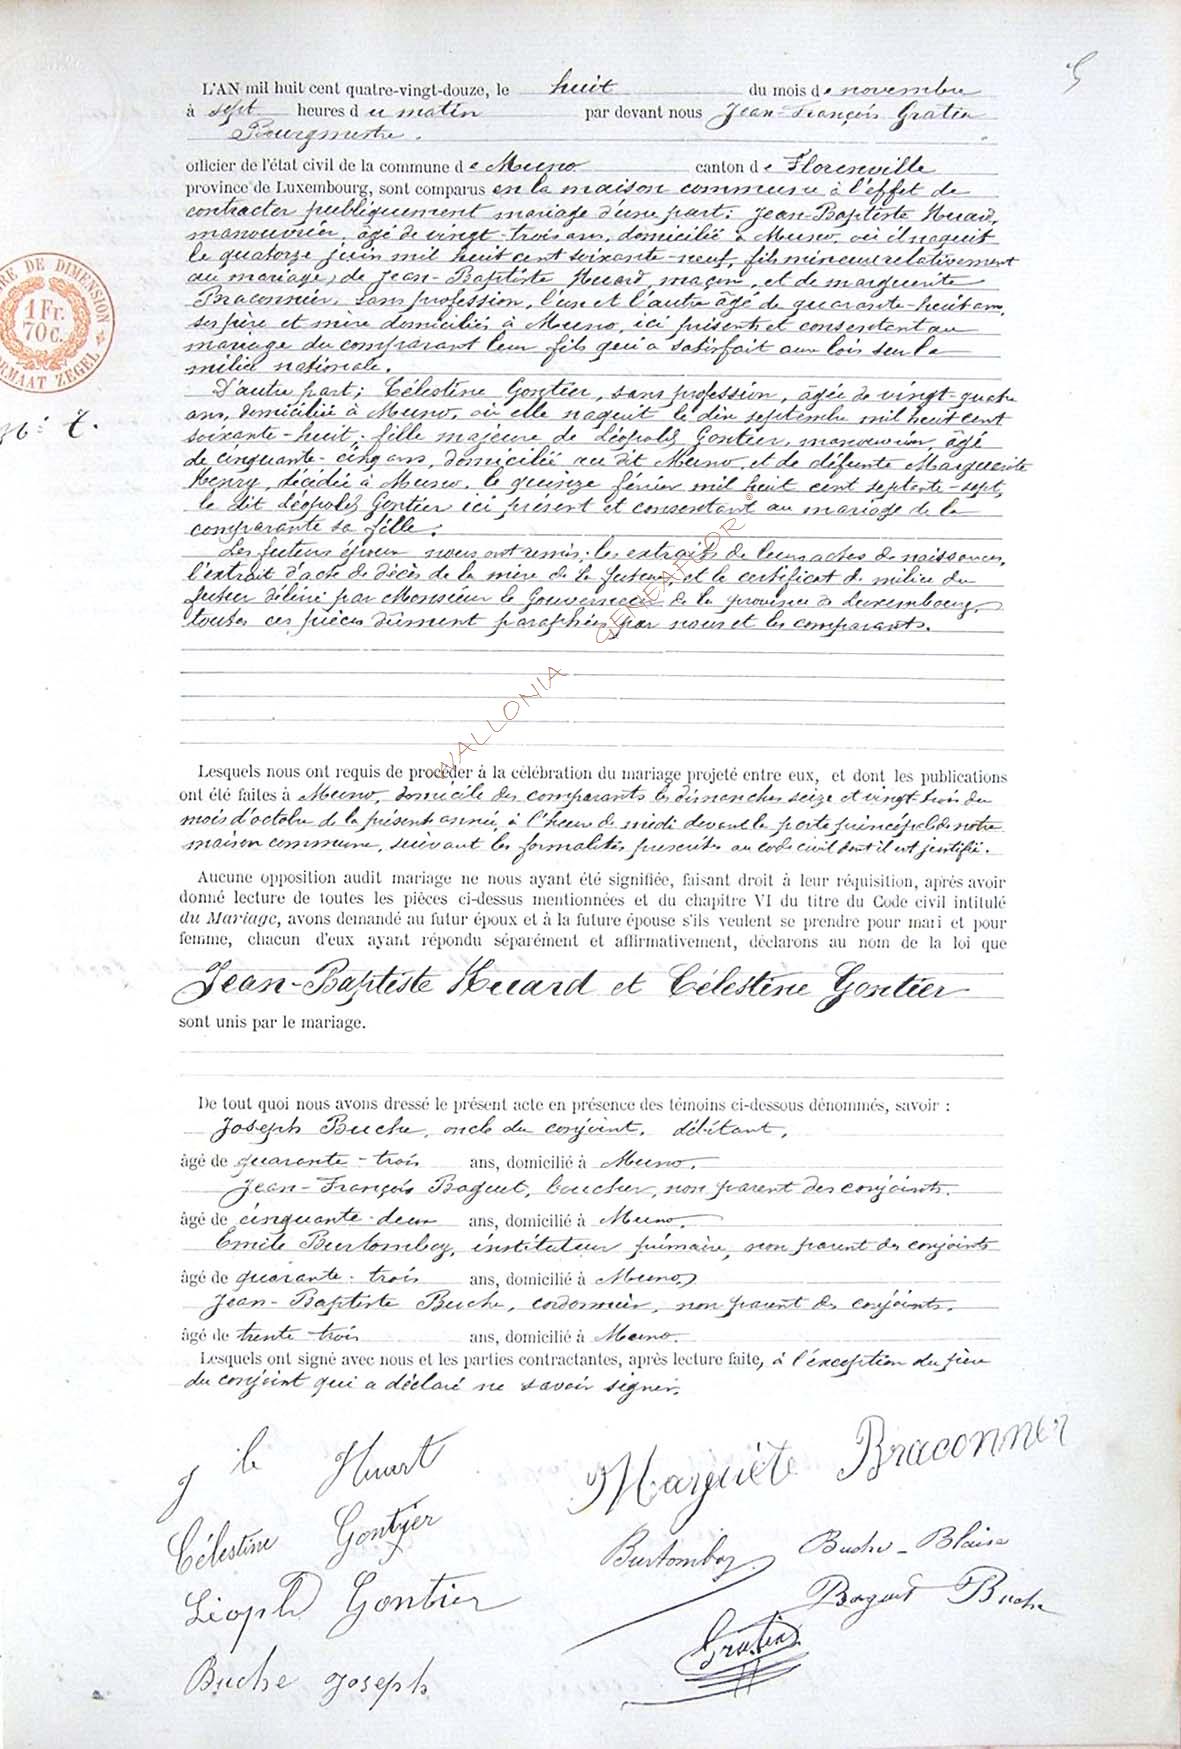 5
L'AN mil huit cent quatre-vingt-douze, le huit du mois de novembre
à sept heures du matin par devant nous Jean-François Gratia
Bourgmestre.
officier de l'état civil de la commune de Muno canton de Florenville
province de Luxembourg, sont comparus en la maison commune à l'effet de
contracter publiquement mariage d'une part: Jean-Baptiste Huard,
manouvrier, âgé de vingt-trois ans, domicilié à Muno, où il naquit
le quatorze juin mil huit cent soixante-neuf, fils mineur relativement
au mariage, de Jean-Baptiste Huard, maçon, et de marguerite
Braconnier, sans profession, l'un et l'autre âgé de quarante-huit ans,
ses père et mère domiciliés à Muno, ici présents et consentant au
mariage du comparant leur fils qui a satisfait aux lois sur la
milice nationale.
D'autre part; Célestine Gontier, sans profession, âgée de vingt-quatre
ans, domiciliée à Muno, où elle naquit le dix septembre mil huit cent
soixante-huit; fille majeure de Léopold Gontier, manouvrier, âgé
de cinquante-cinq ans, domicilié au dit Muno, et de défunte Marguerite
Henry, décédée à Muno, le quinze février mil huit cent septante-sept,
le dit Léopold Gontier ici présent et consentant au mariage de la
comparante sa fille.
Les futurs époux nous ont remis: les extraits de leurs actes de naissances,
l'extrait d'acte de décès de la mère de la future, et le certificat de milice du
futur délivré par Monsieur le Gouverneur de la province de Luxembourg,
toutes ces pièces dûment paraphées par nous et les comparants.
TIMBRE DE DIMENSION
1 Fr.
70 c.
FORMAAT ZEGEL
N: 7.
WALLONIA GENEAFLOR
Lesquels nous ont requis de procéder à la célébration du mariage projeté entre eux, et dont les publications
ont été faites à Muno, domicile des comparants les dimanches seize et vingt-trois du
mois d'octobre de la présente année, à l'heure de midi devant la porte principale de notre
maison commune, suivant les formalités prescrites au code civil dont il est justifié.
Aucune opposition audit mariage ne nous ayant été signifiée, faisant droit à leur réquisition, après avoir
donné lecture de toutes les pièces ci-dessus mentionnées et du chapitre VI du titre du Code civil intitulé
du Mariage, avons demandé au futur époux et à la future épouse s'ils veulent se prendre pour mari et pour
femme, chacun d'eux ayant répondu séparément et affirmativement, déclarons au nom de la loi que
Jean-Baptiste Huard et Célestine Gontier
sont unis par le mariage.
De tout quoi nous avons dressé le présent acte en présence des témoins ci-dessous dénommés, savoir :
Joseph Buche, oncle du conjoint, débitant,
âgé de quarante-trois ans, domicilié à Muno.
Jean-François Baguet, boucher, non parent des conjoints.
âgé de cinquante-deux ans, domicilié à Muno.
Emile Burtomboy, instituteur primaire, non parent des conjoints
âgé de quarante-trois ans, domicilié à Muno,
Jean-Baptiste Buche, cordonnier, non parent des conjoints.
âgé de trente-trois ans, domicilié à Muno.
Lesquels ont signé avec nous et les parties contractantes, après lecture faite, à l'exception du père
du conjoint qui a déclaré ne savoir signer.
J Bte Huart
Marguéte Braconner
Célestine Gontier
Burtomboy
Buche-Blaise
Léopld Gontier
Baguet
Buche
Gratia
Buche Joseph